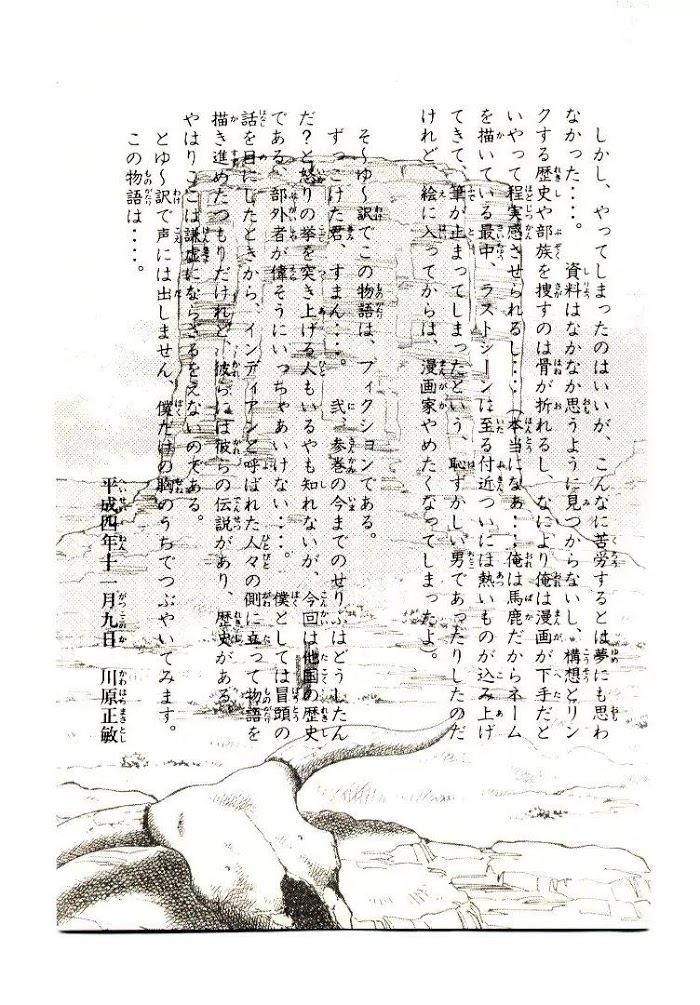 しかし、やってしまったのはいいが、こんなに苦労するとは夢にも思わ
なかった‥‥。　資料はなかなか思うように見つからないし、構想とリン
クする歴史や部族を捜すのは骨が折れるし、なにより俺は漫画が下手だと
いやって程実感させられるし‥‥（本当になぁ‥‥俺は馬鹿だからネーム
を描いている最中、ラストシーンに至る付近ついには熱いものが込み上げ
てきて、筆が止まってしまったという、恥ずかしい男であったりしたのだ
けれど）絵に入ってからは、漫画家やめたくなってしまったよ。
そ〜ゆ〜訳でこの物語は、フィクションである。
ずっこけた君、すまん‥‥。　弐、参巻の今までのせりふはどうしたん
だ？と怒りの挙を突き上げる人もいるやも知れないが、今回は他国の歴史
である、部外者が偉そうにいっちゃあいけない‥‥。　僕としては冒頭の
話を目にしたときから、インディアンと呼ばれた人々の側に立って物語を
描き進めたつもりだけれど、彼らには彼らの伝説があり、歴史がある。
やはりここは謙虚にならざるをえないのである。
とゆ〜訳で声には出しません、僕だけの胸のうちでつぶやいてみます。
この物語は‥‥。
平成四年十一月九日　川原正敏